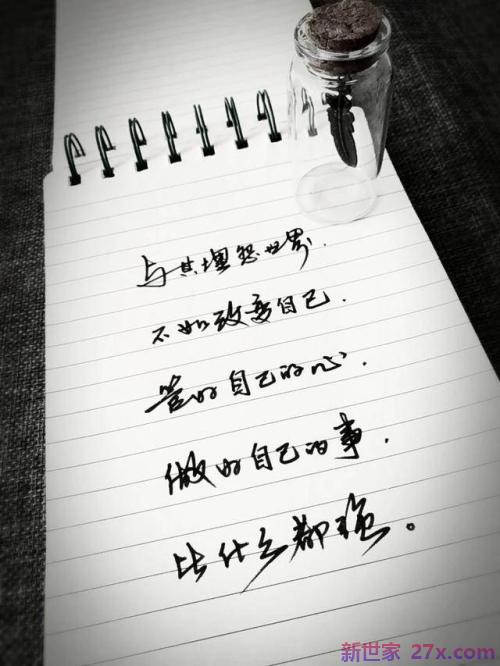 与其埋怨世界.
不如改变自己.
管好自己的心.
做好自己的事.
比什么都强。
新世家 27x.com